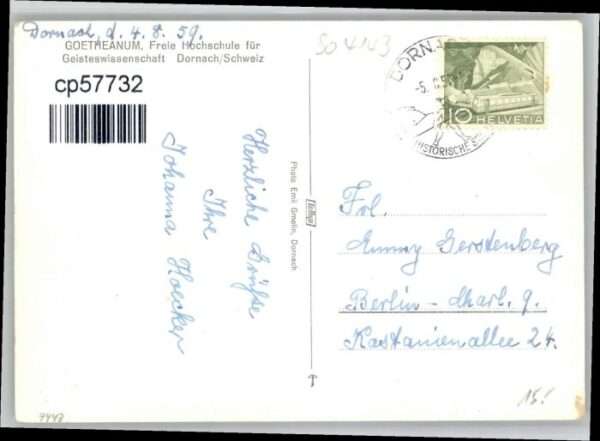 Dornach, d. 4. 8. 59.
GOETHEANUM, Freie Hochschule für
Geisteswissenschaft Dornach/Schweiz
cp57732
Herzliche Grüße
Ihre
Johanna Hoecker
Photo Emil Gmelin, Dornach
So 4143
DORNACH
-5. 8. 59
HISTORISCHE
10 HELVETIA
Frl.
Emmy Gerstenberg
Berlin-Charl. 9.
Kastanienallee 24.
15!